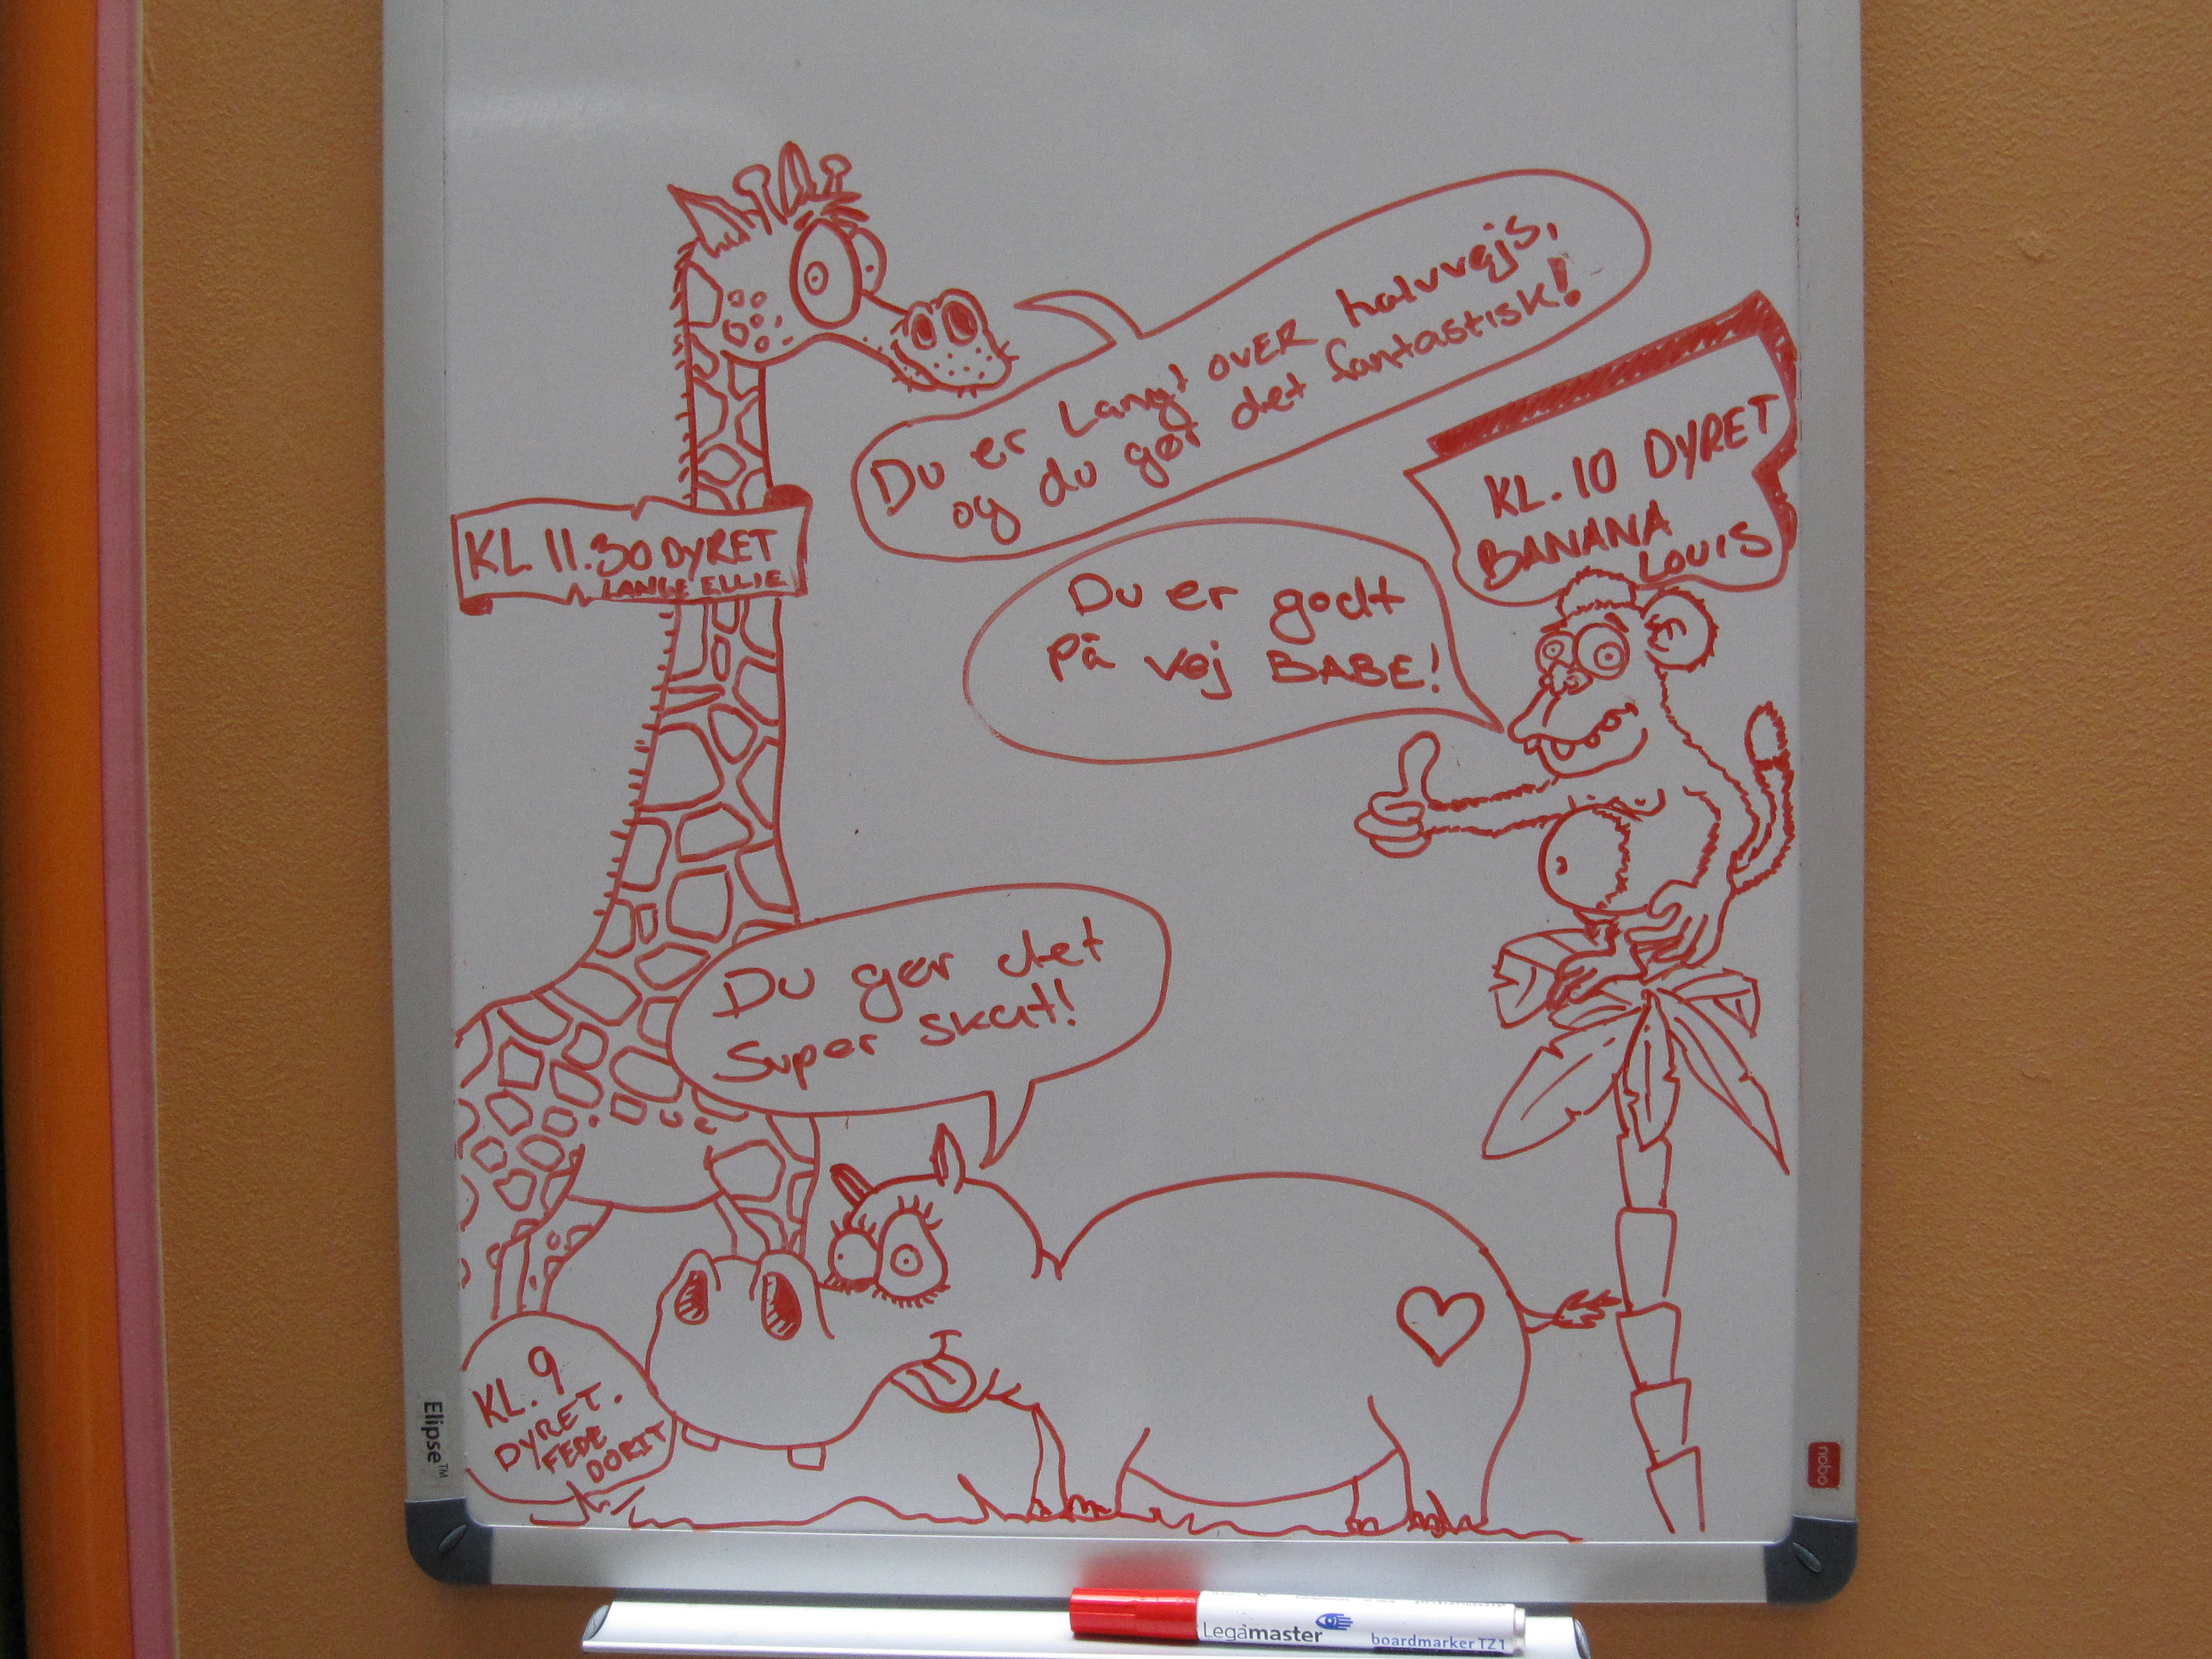 Du er Langt OVER halvvejs,
og du gør det fantastisk!
KL. 10 DYRET
BANANA
LOUIS
KL 11.30 DYRET
LANGE ELLIE
Du er godt
på vej BABE!
Du gør det
Super skat!
KL. 9
DYRET.
FEDE
DORIT
Elipse™
nobo
Legamaster boardmarker TZ1